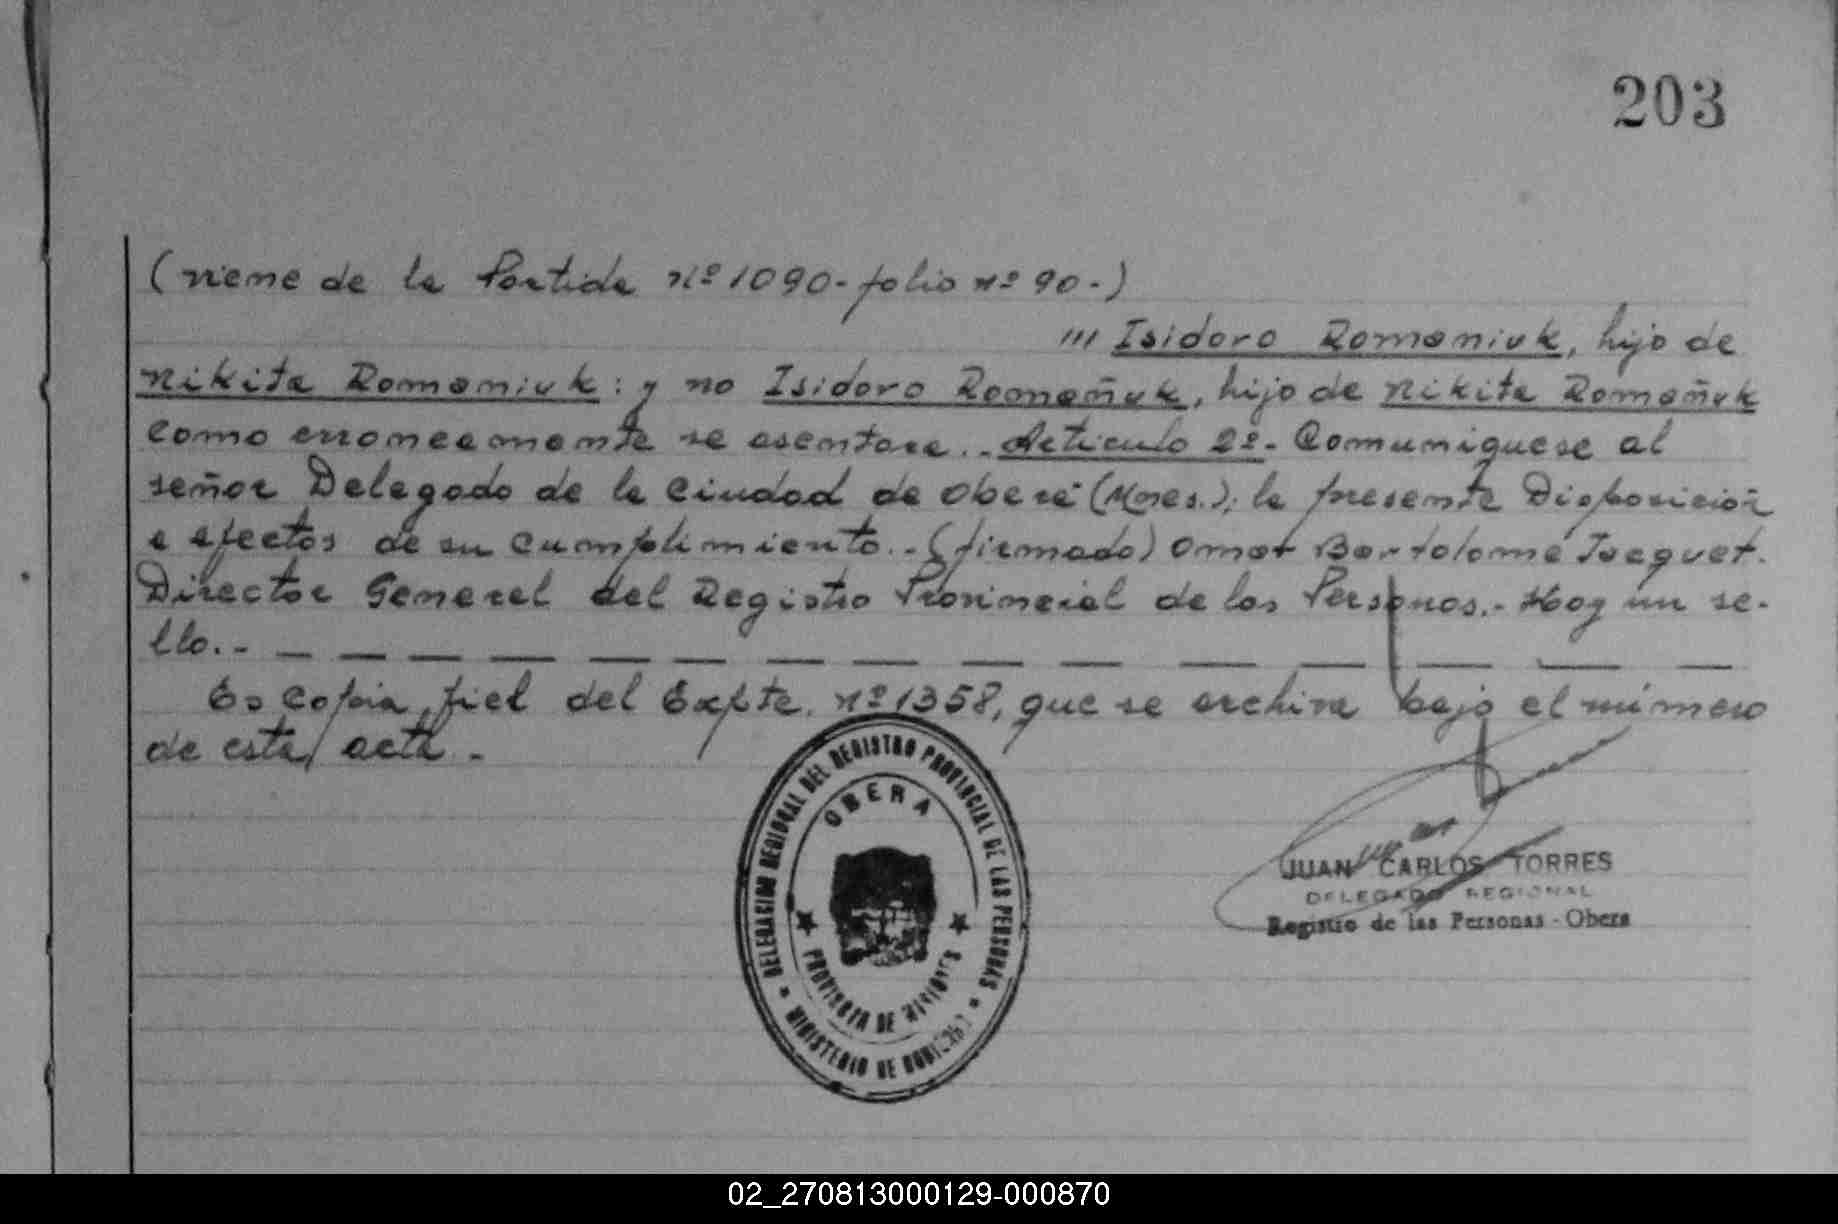 203
(viene de la Partida nº 1090.- folio nº 90.-)
''' Isidoro Romaniuk, hijo de
Nikita Romaniuk: y no Isidoro Romañuk, hijo de Nikita Romañuk
como erroneamente se asentara..- Articulo 2º.- Comuniquese al
señor Delegado de la Ciudad de Oberá (Mnes.); la presente Disposición
a efectos de su cumplimiento..- (firmado) Omar Bartolomé Jacquet.
Director General del Registro Provincial de las Personas.- Hay un se-
llo.-
Es copia fiel del Expte. nº 1358, que se archiva bajo el número
de esta acta.-
DELEGACION REGIONAL DEL REGISTRO PROVINCIAL DE LAS PERSONAS
OBERA
PROVINCIA DE MISIONES
MINISTERIO DE GOBIERNO
JUAN CARLOS TORRES
DELEGADO REGIONAL
Registro de las Personas - Obera
02_270813000129-000870